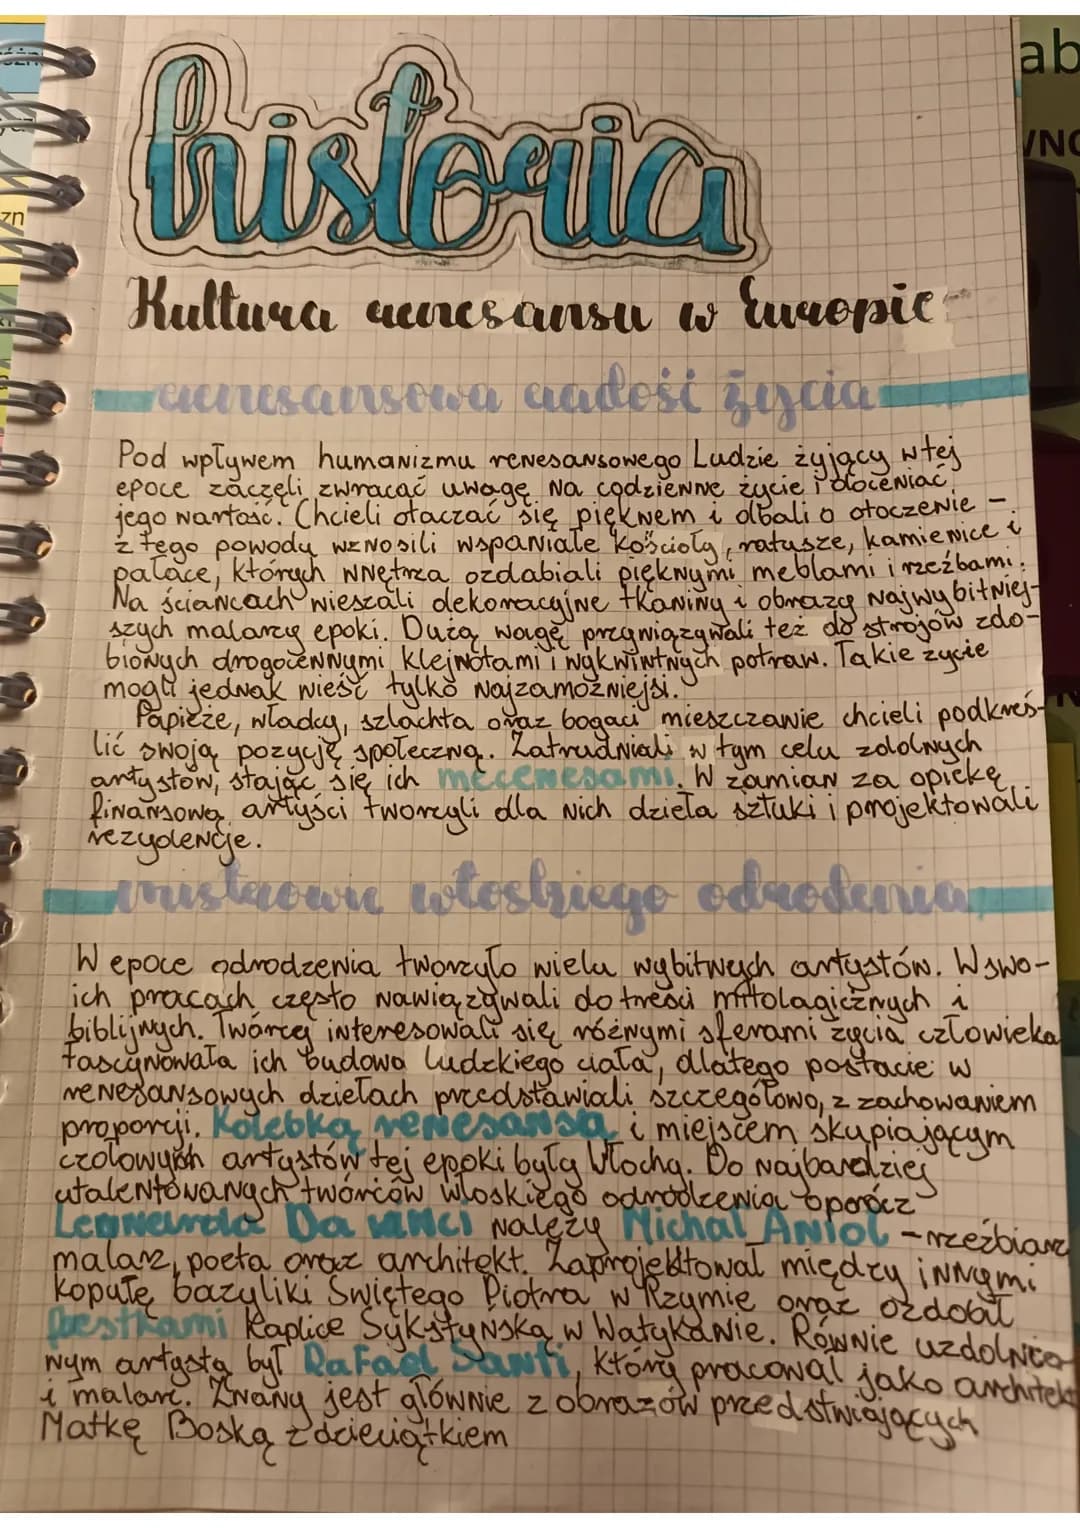 historia
Kultura renesansu w Europie
renesansowa radość życia
Pod wpływem humanizmu renesansowego Ludzie żyjący w tej
epoce zaczęli zwracać uwagę na codzienne życie i doceniać
jego wartość. Chcieli otaczać się pięknem i dbali o otoczenie -
z tego powodu wznosili wspaniałe kościoły, ratusze, kamienice i
pałace, których wnętrza ozdabiali pięknymi meblami i rzeźbami.
Na ściancach wieszali dekoracyjne tkaniny i obrazy najwybitniej-
szych malarzy epoki. Dużą wagę przywiązywali też do strojów zdo-
bionych drogocennymi klejnotami i wykwintnych potraw. Takie życie
mogli jednak wieść tylko najzamożniejsi.
Papieże, władcy, szlachta oraz bogaci mieszczanie chcieli podkreś-
lić swoją pozycję społeczną. Zatrudniali w tym celu zdolnych
artystów, stając się ich mecenesami. W zamian za opiekę
finansową artyści tworzyli dla nich dzieła sztuki i projektowali
rezydencje.
mistrzowie włoskiego odrodzenia
W epoce odrodzenia tworzyło wielu wybitnych artystów. W swo-
ich pracach często nawiązywali do treści mitologicznych i
biblijnych. Twórcy interesowali się różnymi sferami życia człowieka
fascynowała ich budowa ludzkiego ciała, dlatego postacie w
renesansowych dziełach przedstawiali szczegółowo, z zachowaniem
proporcji. Kolebką renesansu i miejscem skupiającym
czołowych artystów tej epoki były Włochy. Do najbardziej
utalentowanych twórców włoskiego odrodzenia oprócz
Leonarda Da Vinci należy Michał Anioł - rzeźbiarz
malarz, poeta oraz architekt. Zaprojektował między innymi
kopułę bazyliki Świętego Piotra w Rzymie oraz ozdobił
freskami Kaplice Sykstyńską w Watykanie. Równie uzdolnio-
nym artystą był Rafael Santi, który pracował jako architekt
i malarz. Znany jest głównie z obrazów przedstwiających
Matkę Boską z dzieciątkiem
ab
zn